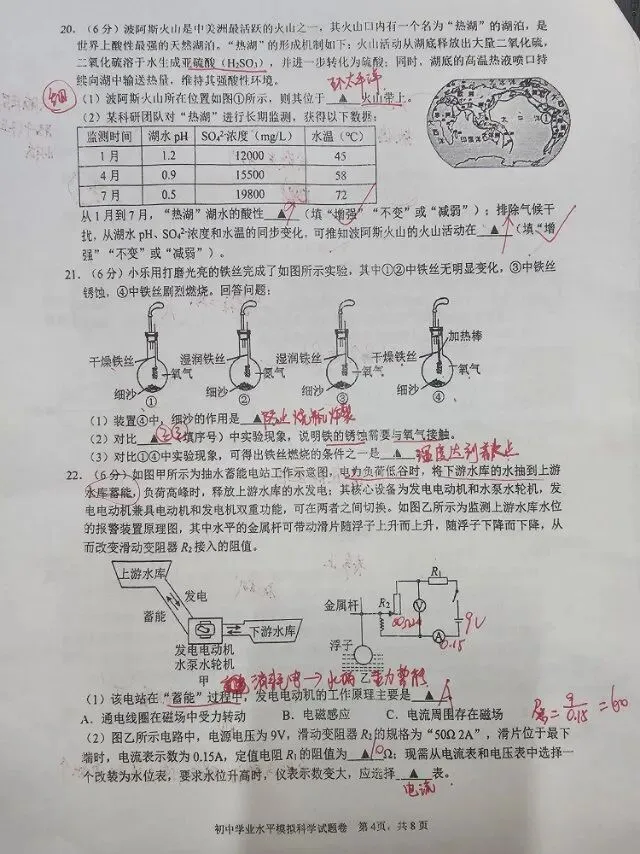 20.（6分）波阿斯火山是中美洲最活跃的火山之一，其火山口内有一个名为“热湖”的湖泊，是
世界上酸性最强的天然湖泊。“热湖”的形成机制如下：火山活动从湖底释放出大量二氧化硫，
二氧化硫溶于水生成亚硫酸（H₂SO₃），并进一步转化为硫酸；同时，湖底的高温热液喷口持
续向湖中输送热量，维持其强酸性环境。
环太平洋
（1）波阿斯火山所在位置如图①所示，则其位于 ▲ 火山带上。
（2）某科研团队对“热湖”进行长期监测，获得以下数据：
监测时间 湖水 pH SO₄²⁻浓度（mg/L） 水温（℃）
1月 1.2 12000 45
4月 0.9 15500 58
7月 0.5 19800 72
从1月到7月，“热湖”湖水的酸性 ▲ （填“增强”“不变”或“减弱”）；排除气候干
扰，从湖水 pH、SO₄²⁻浓度和水温的同步变化，可推知波阿斯火山的火山活动在 ▲ （填“增
强”“不变”或“减弱”）。
21.（6分）小乐用打磨光亮的铁丝完成了如图所示实验，其中①②中铁丝无明显变化，③中铁丝
锈蚀，④中铁丝剧烈燃烧。回答问题：
加热棒
干燥铁丝 湿润铁丝 湿润铁丝 干燥铁丝
氧气 氮气 氧气 氧气
细沙 细沙 细沙 细沙
① ② ③ ④
（1）装置④中，细沙的作用是 ▲ 防止烧瓶炸裂
（2）对比 ▲ ②③（填序号）中实验现象，说明铁的锈蚀需要与氧气接触。
（3）对比①④中实验现象，可得出铁丝燃烧的条件之一是 ▲ 温度达到着火点
22.（6分）如图甲所示为抽水蓄能电站工作示意图，电力负荷低谷时，将下游水库的水抽到上游
水库蓄能，负荷高峰时，释放上游水库的水发电；其核心设备为发电电动机和水泵水轮机，发
电电动机兼具电动机和发电机双重功能，可在两者之间切换。如图乙所示为监测上游水库水位
的报警装置原理图，其中水平的金属杆可带动滑片随浮子上升而上升，随浮子下降而下降，从
而改变滑动变阻器 R₂ 接入的阻值。
上游水库
发电
蓄能
下游水库
发电电动机
水泵水轮机
甲
R₁
金属杆
R₂
V
9V
A
0.15
浮子
乙
（1）该电站在“蓄能”过程中，发电电动机的工作原理主要是 ▲ A
A．通电线圈在磁场中受力转动 B．电磁感应 C．电流周围存在磁场
R总=9/0.15=60
（2）图乙所示电路中，电源电压为 9V，滑动变阻器 R₂ 的规格为“50Ω 2A”，滑片位于最下
端时，电流表示数为 0.15A，定值电阻 R₁ 的阻值为 ▲ 10 Ω；现需从电流表和电压表中选择一
个改装为水位表，要求水位升高时，仪表示数变大，应选择 ▲ 表。
电流
初中学业水平模拟科学试题卷 第4页，共8页